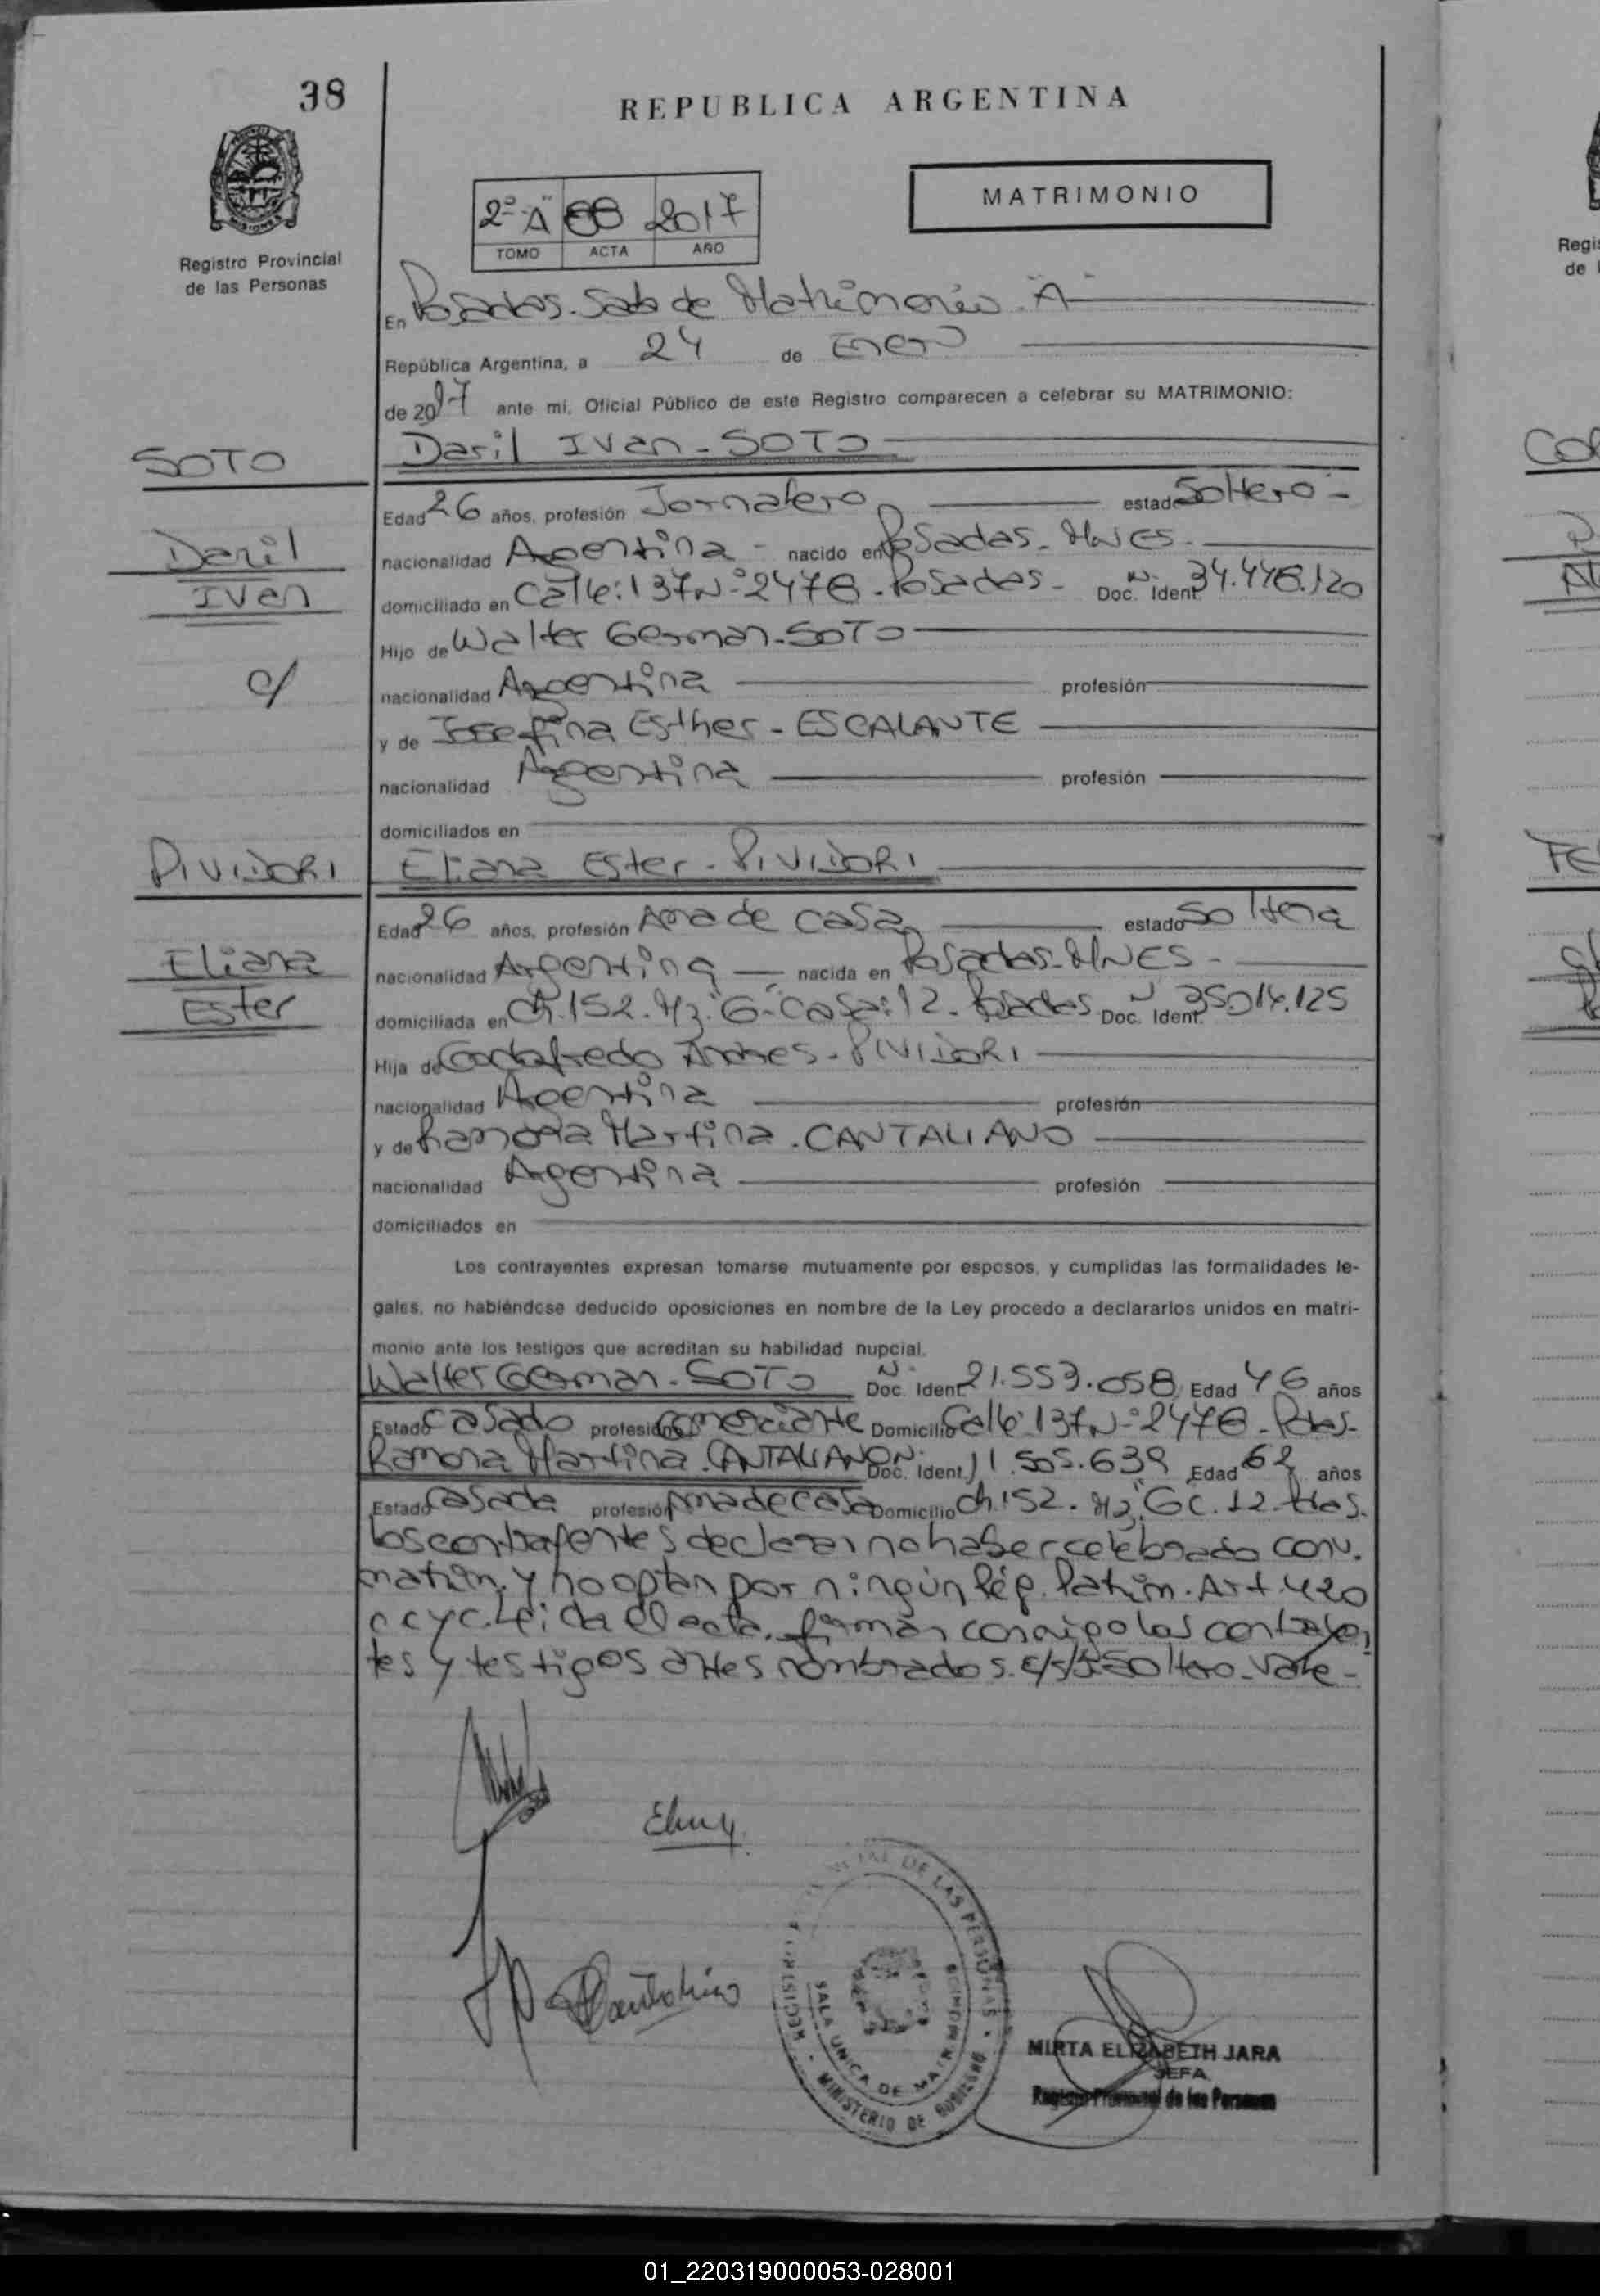 38
REPUBLICA ARGENTINA
MATRIMONIO
2º "A" 88 2017
TOMO ACTA AÑO
Registro Provincial
de las Personas
En Posadas. Sala de Matrimonio "A"
República Argentina, a 24 de Enero
de 2017 ante mi, Oficial Público de este Registro comparecen a celebrar su MATRIMONIO:
SOTO
Daril Ivan - SOTO
Edad 26 años, profesión Jornalero estado Soltero -
Daril
nacionalidad Argentina - nacido en Posadas - Mnes.
Ivan
domiciliado en Calle: 137 Nº 2478 - Posadas - Doc. Ident. Nº 34.448.120
Hijo de Walter German - SOTO
c/
nacionalidad Argentina profesión
y de Josefina Esther - ESCALANTE
nacionalidad Argentina profesión
domiciliados en
PIVIDORI
Eliana Ester - PIVIDORI
Edad 26 años, profesión Ama de casa estado Soltera
Eliana
nacionalidad Argentina nacida en Posadas - MNES -
Ester
domiciliada en Ch. 152. Mz. "G" Casa: 12 - Posadas Doc. Ident. Nº 35.014.125
Hija de Godofredo Andres - PIVIDORI
nacionalidad Argentina profesión
y de Ramona Martina . CANTALIANO
nacionalidad Argentina profesión
domiciliados en
Los contrayentes expresan tomarse mutuamente por esposos, y cumplidas las formalidades le-
gales, no habiéndose deducido oposiciones en nombre de la Ley procedo a declararlos unidos en matri-
monio ante los testigos que acreditan su habilidad nupcial.
Walter German - SOTO Doc. Ident. Nº 21.553.058 Edad 46 años
Estado Casado profesión Comerciante Domicilio Calle 137 Nº 2478 - Pdas.
Ramona Martina . CANTALIANO Doc. Ident. Nº 11.505.639 Edad 62 años
Estado Casada profesión Ama de casa Domicilio Ch. 152. Mz. "G" C. 12. Pdas.
Los contrayentes declaran no haber celebrado conv.
matrim. y no optan por ningún Rég. Patrim. Art. 420
c c y c. Leida el acta, firman conmigo los contrayen
tes y testigos antes nombrados. e/s/r Soltero - Vale -
REGISTRO PROVINCIAL DE LAS PERSONAS
SALA UNICA DE MATRIMONIOS
MINISTERIO DE GOBIERNO
MIRTA ELIZABETH JARA
JEFA
Registro Provincial de las Personas
Regis
de l
01_220319000053-028001